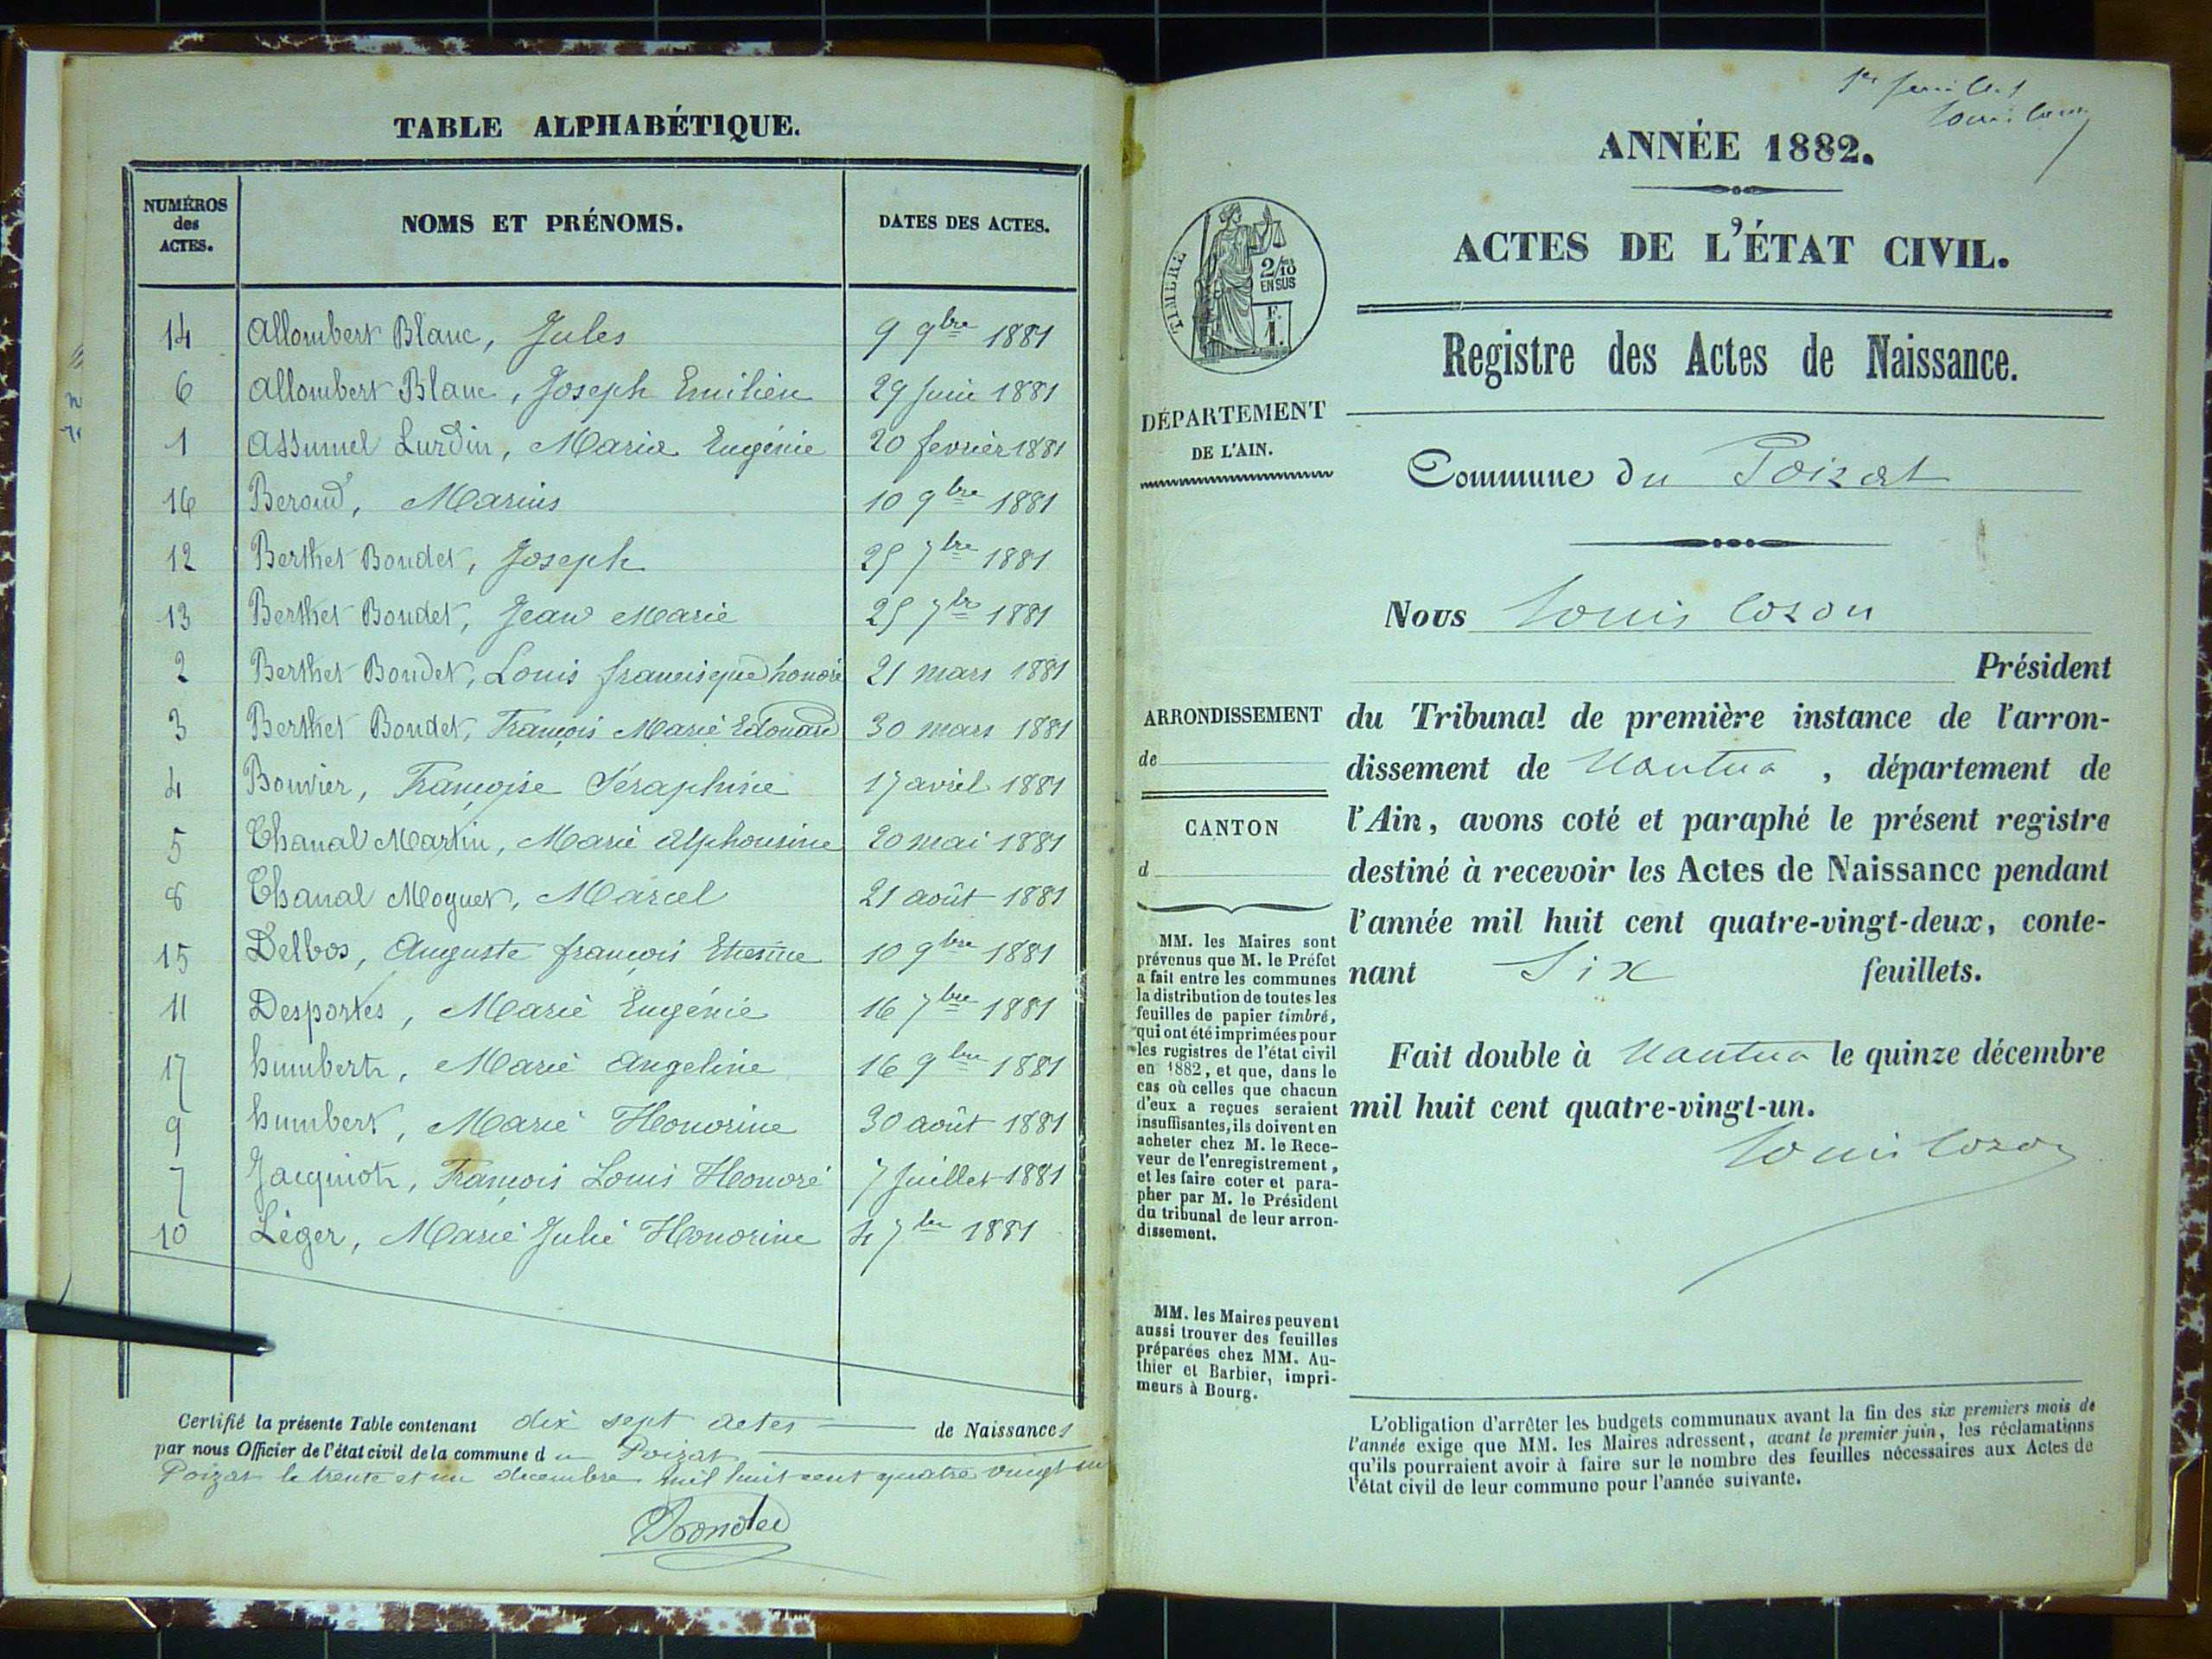 TABLE ALPHABÉTIQUE.
NUMÉROS des ACTES. NOMS ET PRÉNOMS. DATES DES ACTES.
14 Allombert Blanc, Jules 9 9bre 1881
6 Allombert Blanc, Joseph Emilien 29 Juin 1881
1 Assumel Lurdin, Marie Eugénie 20 fevrièr 1881
16 Beroud, Marius 10 9bre 1881
12 Berthet Bondet, Joseph 25 7bre 1881
13 Berthet Bondet, Jean Marie 25 7bre 1881
2 Berthet Bondet, Louis francisque honoré 21 mars 1881
3 Berthet Bondet, François Marie Edouard 30 mars 1881
4 Bouvier, Françoise Séraphine 17 avril 1881
5 Chanal Martin, Marie Alphonsine 20 mai 1881
8 Chanal Moguet, Marcel 21 août 1881
15 Delbos, Auguste françois Etienne 10 9bre 1881
11 Desportes, Marie Eugénie 16 7bre 1881
17 humbert, Marie Angeline 16 9bre 1881
9 humbert, Marie Honorine 30 août 1881
7 Jacquiot, François Louis Honoré 7 Juillet 1881
10 Léger, Marie Julie Honorine 4 7bre 1881
Certifié la présente Table contenant dix sept actes de Naissances
par nous Officier de l'état civil de la commune du Poizat
Poizat le trente et un decembre mil huit cent quatre vingt un
1er feuillet
Louis Cozon
ANNÉE 1882.
ACTES DE L'ÉTAT CIVIL.
TIMBRE
2/10
EN SUS
F.
1.
Registre des Actes de Naissance.
DÉPARTEMENT
DE L'AIN.
Commune du Poizat
Nous Louis Cozon
Président
ARRONDISSEMENT
de
CANTON
d
du Tribunal de première instance de l'arron-
dissement de Nantua, département de
l'Ain, avons coté et paraphé le présent registre
destiné à recevoir les Actes de Naissance pendant
l'année mil huit cent quatre-vingt-deux, conte-
nant Six feuillets.
Fait double à Nantua le quinze décembre
mil huit cent quatre-vingt-un.
Louis Cozon
MM. les Maires sont
prévenus que M. le Préfet
a fait entre les communes
la distribution de toutes les
feuilles de papier timbré,
qui ont été imprimées pour
les registres de l'état civil
en 1882, et que, dans le
cas où celles que chacun
d'eux a reçues seraient
insuffisantes, ils doivent en
acheter chez M. le Rece-
veur de l'enregistrement,
et les faire coter et para-
pher par M. le Président
du tribunal de leur arron-
dissement.
MM. les Maires peuvent
aussi trouver des feuilles
préparées chez MM. Au-
thier et Barbier, impri-
meurs à Bourg.
L'obligation d'arrêter les budgets communaux avant la fin des six premiers mois de
l'année exige que MM. les Maires adressent, avant le premier juin, les réclamations
qu'ils pourraient avoir à faire sur le nombre des feuilles nécessaires aux Actes de
l'état civil de leur commune pour l'année suivante.